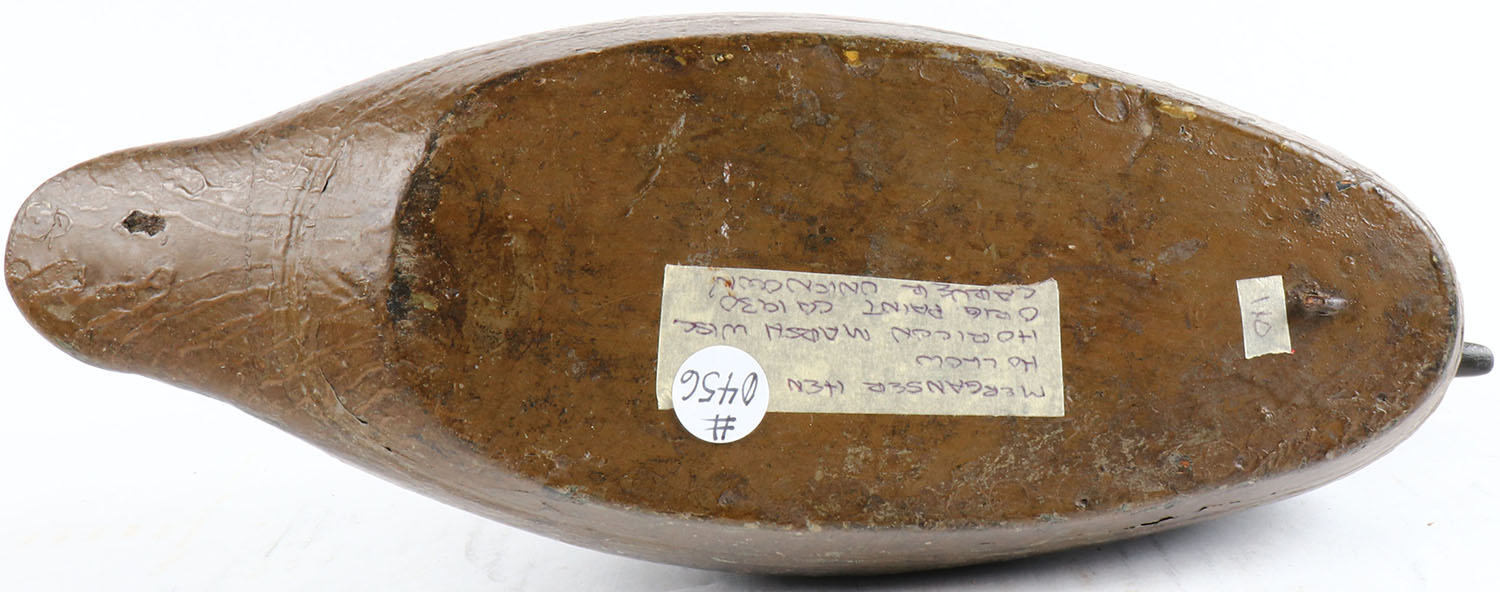 MERGANSER HEN
HOLLOW
HORICON MARSH WISC
ORIG PAINT CA 1930
CARVER UNKNOWN
#
0456
110